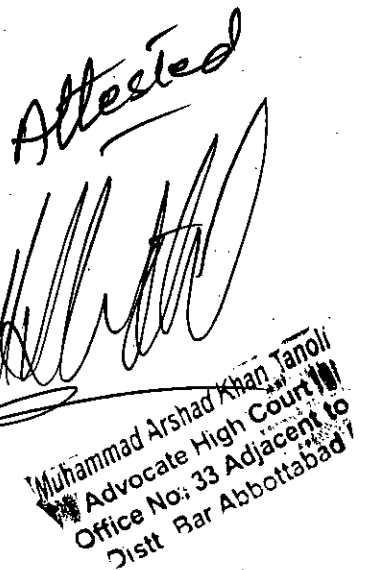 Attested
Muhammad Arshad Khan Tanoli
Advocate High Court
Office No: 33 Adjacent to
Distt Bar Abbottabad